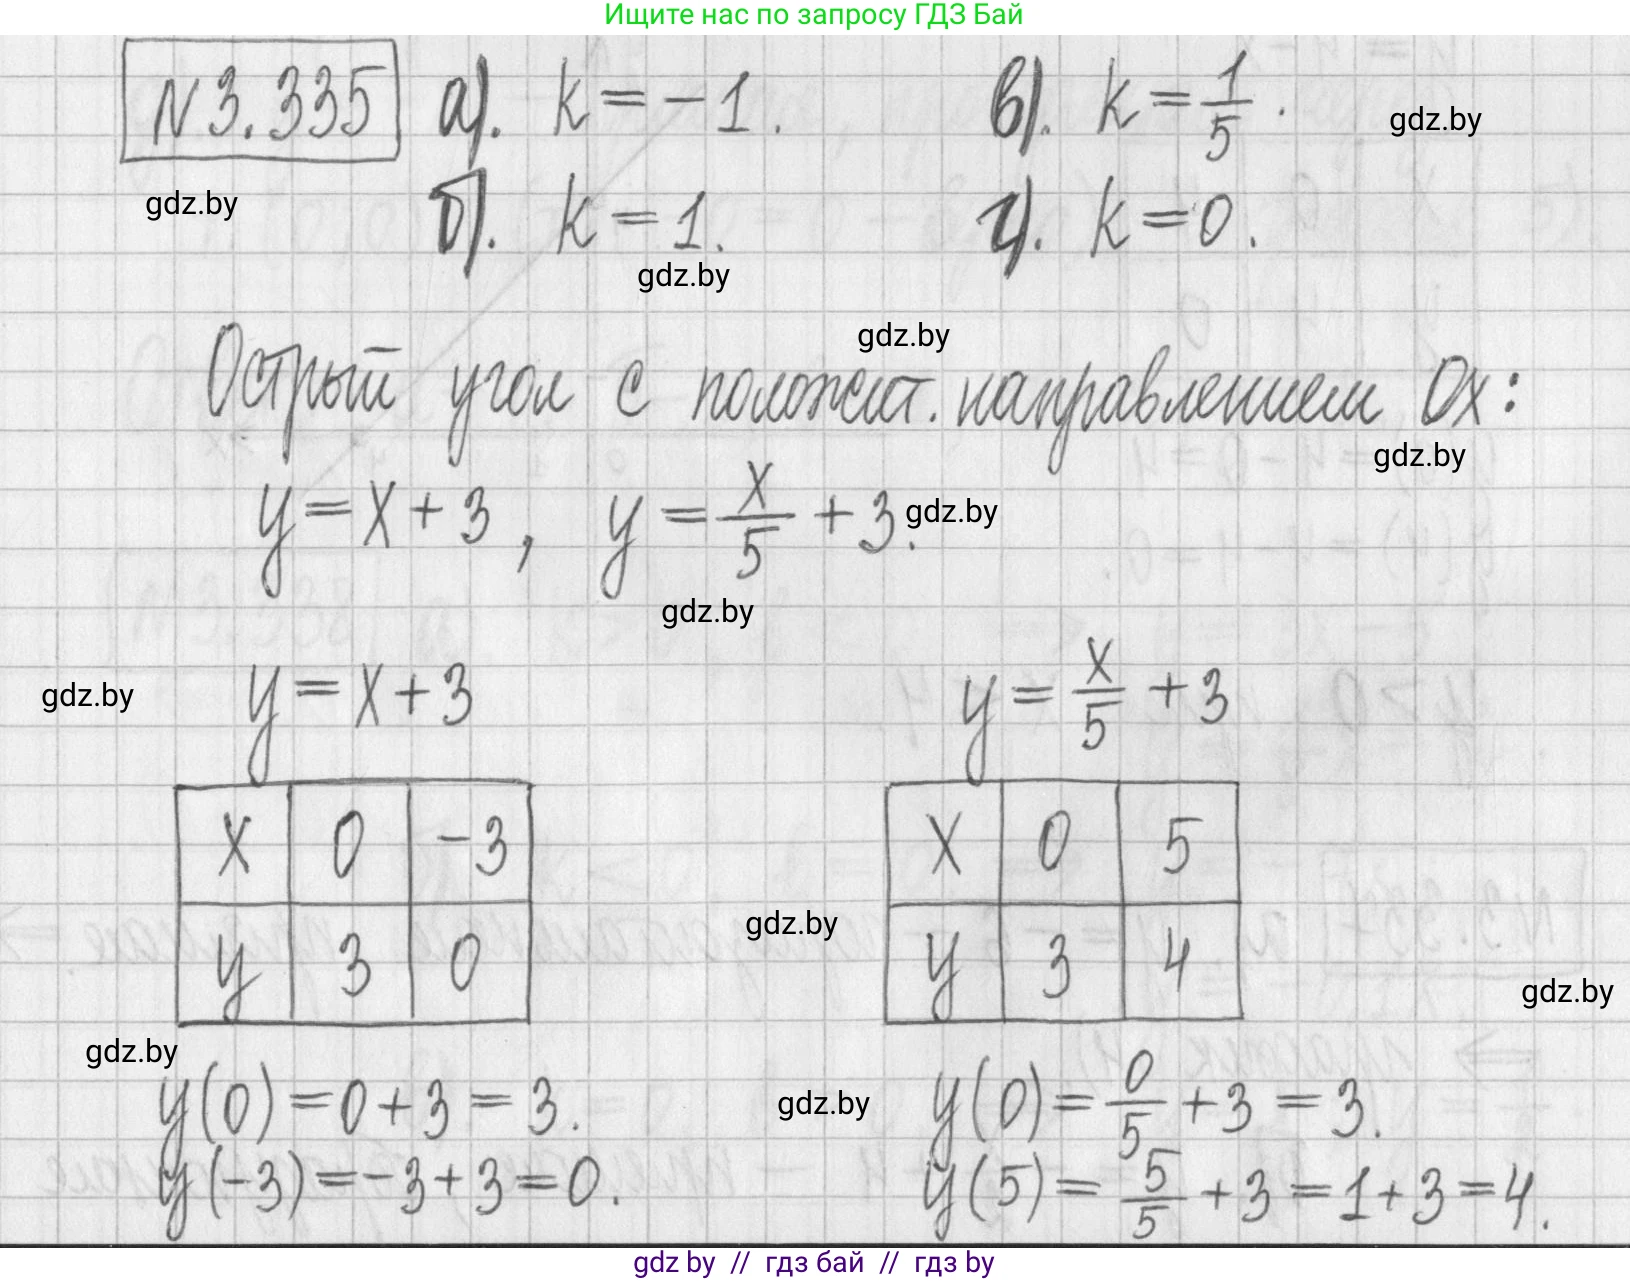 Ищите нас по запросу ГДЗ Бай
N 3.335 а). k = -1. в). k = 1/5. gdz.by
gdz.by б). k = 1. г). k = 0.
gdz.by
gdz.by
Острый угол с положит. направлением Ox:
gdz.by
y = x + 3, y = x/5 + 3. gdz.by
gdz.by
gdz.by y = x + 3 y = x/5 + 3
x 0 -3 x 0 5
gdz.by
y 3 0 y 3 4
gdz.by
gdz.by
y(0) = 0 + 3 = 3. gdz.by y(0) = 0/5 + 3 = 3.
y(-3) = -3 + 3 = 0. y(5) = 5/5 + 3 = 1 + 3 = 4.
gdz by // гдз бай // гдз by